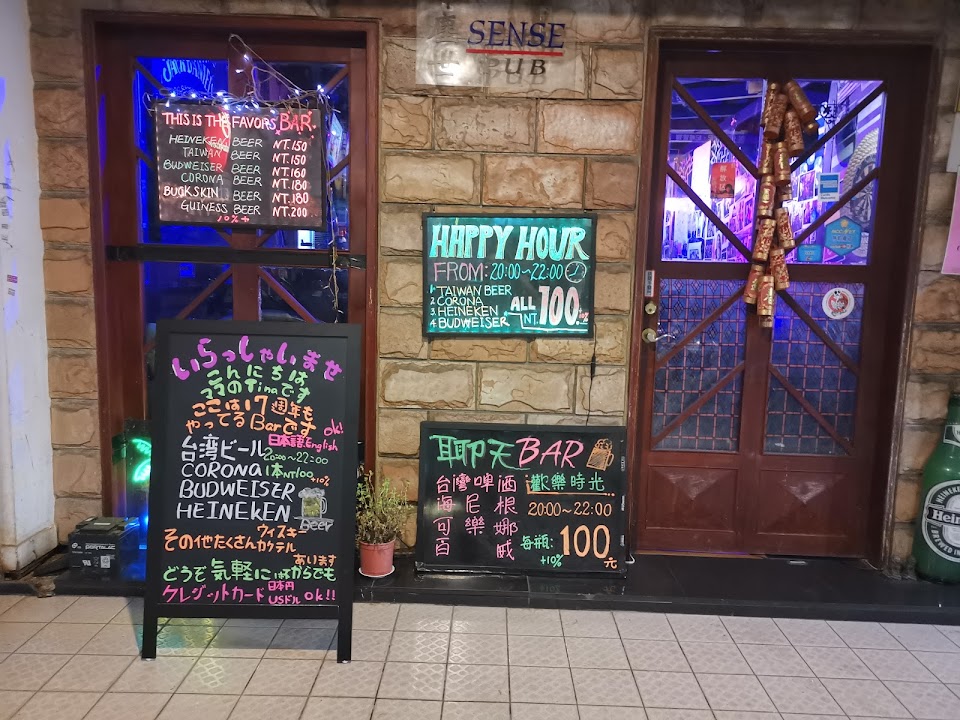 SENSE
PUB
JACK DANIEL
THIS IS THE FAVORS BAR.
HEINEKEN BEER NT.150
TAIWAN BEER NT.150
BUDWEISER BEER NT.160
CORONA BEER NT.180
BUCKSKIN BEER NT.180
GUINESS BEER NT.200
10%+
HAPPY HOUR
FROM: 20:00~22:00
1. TAIWAN BEER
2. CORONA
3. HEINEKEN
4. BUDWEISER
ALL NT. 100.
いらっしゃいませ
こんにちは
ママのTinaです
ここは17週年も
やってるBarです
ok!
日本語.English
台湾ビール 20:00~22:00
CORONA 1本NT100 +10%
BUDWEISER
HEINEKEN
Beer
ウィスキー
その他たくさんカクテル
あいます
どうぞ気軽に
からでも
クレジットカード 日本円 USドル ok!!
聊天BAR
台灣啤酒 歡樂時光
海尼根 20:00~22:00
可樂娜
百威 每瓶: 100元
+10%
Hei
HEINEKEN